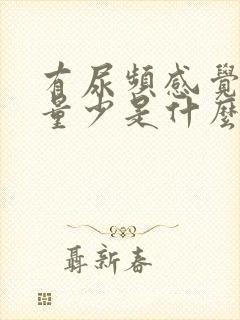 有尿頻感覺
量少是什麼
聶新春